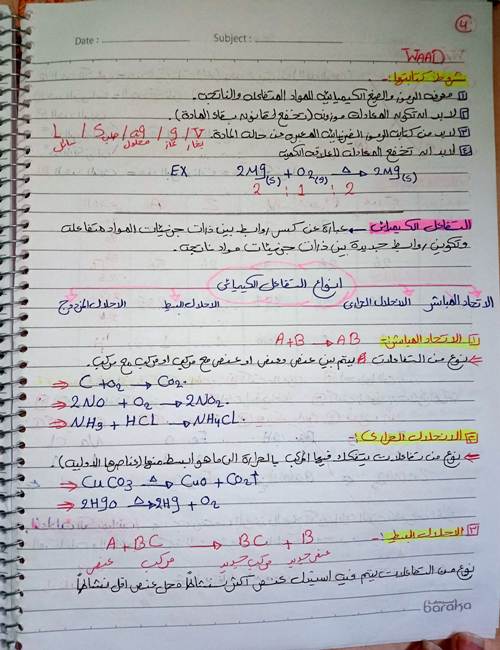 ٤
Date : Subject :
WAAD
شروط كتابتها :-
١ معرفه الرموز والصيغ الكيميائيه للمواد المتفاعله والناتجه.
٢ لابد ان تكون المعادله موزونه (تخضع لقانون بقاء المادة).
٣ لابد من كتابة الرموز الفيزيائيه المعبره عن حاله المادة. L / S / aq / g / V
بخار غاز محلول صلب سائل
٤ لابد ان تخضع المعادله للعلاقه الكميه
EX 2Mg(s) + O2(g) Δ→ 2Mg(s)
2 : 1 : 2
التفاعل الكيميائي ← عبارة عن كسر روابط بين ذرات جزيئات المواد متفاعله
وتكوين روابط جديدة بين ذرات جزيئات مواد ناتجه.
انواع التفاعل الكيميائي
الاتحاد المباشر الانحلال الحراري الاحلال البسيط الاحلال المزدوج
١ الاتحاد المباشر :- A + B → AB
نوع من التفاعلات يتم بين عنصر وعنصر او عنصر مع مركب او مركب مع مركب.
⇒ C + O2 → CO2.
⇒ 2NO + O2 → 2NO2.
⇒ NH3 + HCl → NH4Cl.
٢ الانحلال الحراري :-
نوع من تفاعلات يتفكك فيها المركب بالحرارة الى ما هو ابسط منها (عناصرها الأولية).
⇒ CuCO3 Δ→ CuO + CO2↑
⇒ 2HgO Δ→ 2Hg + O2
٣ الاحلال البسيط :-
A + BC → BC + B
عنصر مركب مركب جديد عنصر جديد
نوع من التفاعلات يتم فيه استبدال عنصر أكثر نشاطاً محل عنصر اقل نشاطاً
baraka